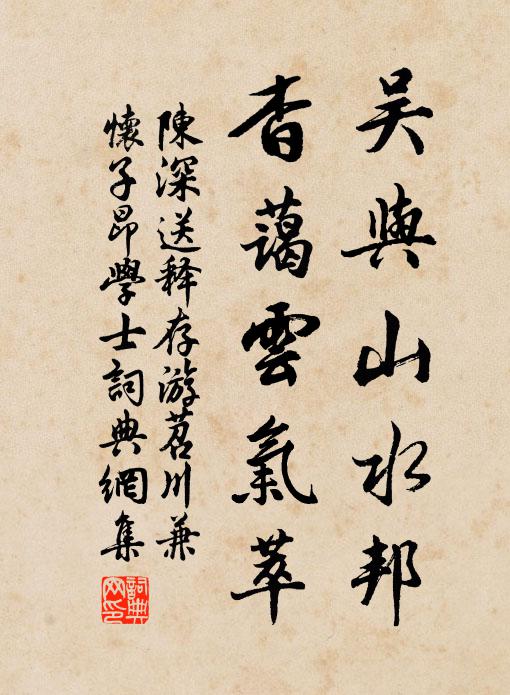 吴與山水邦
杳藹雲氣萃
陳深送释存游苕川兼
懷子昂學士詞典網集
詞典
网印